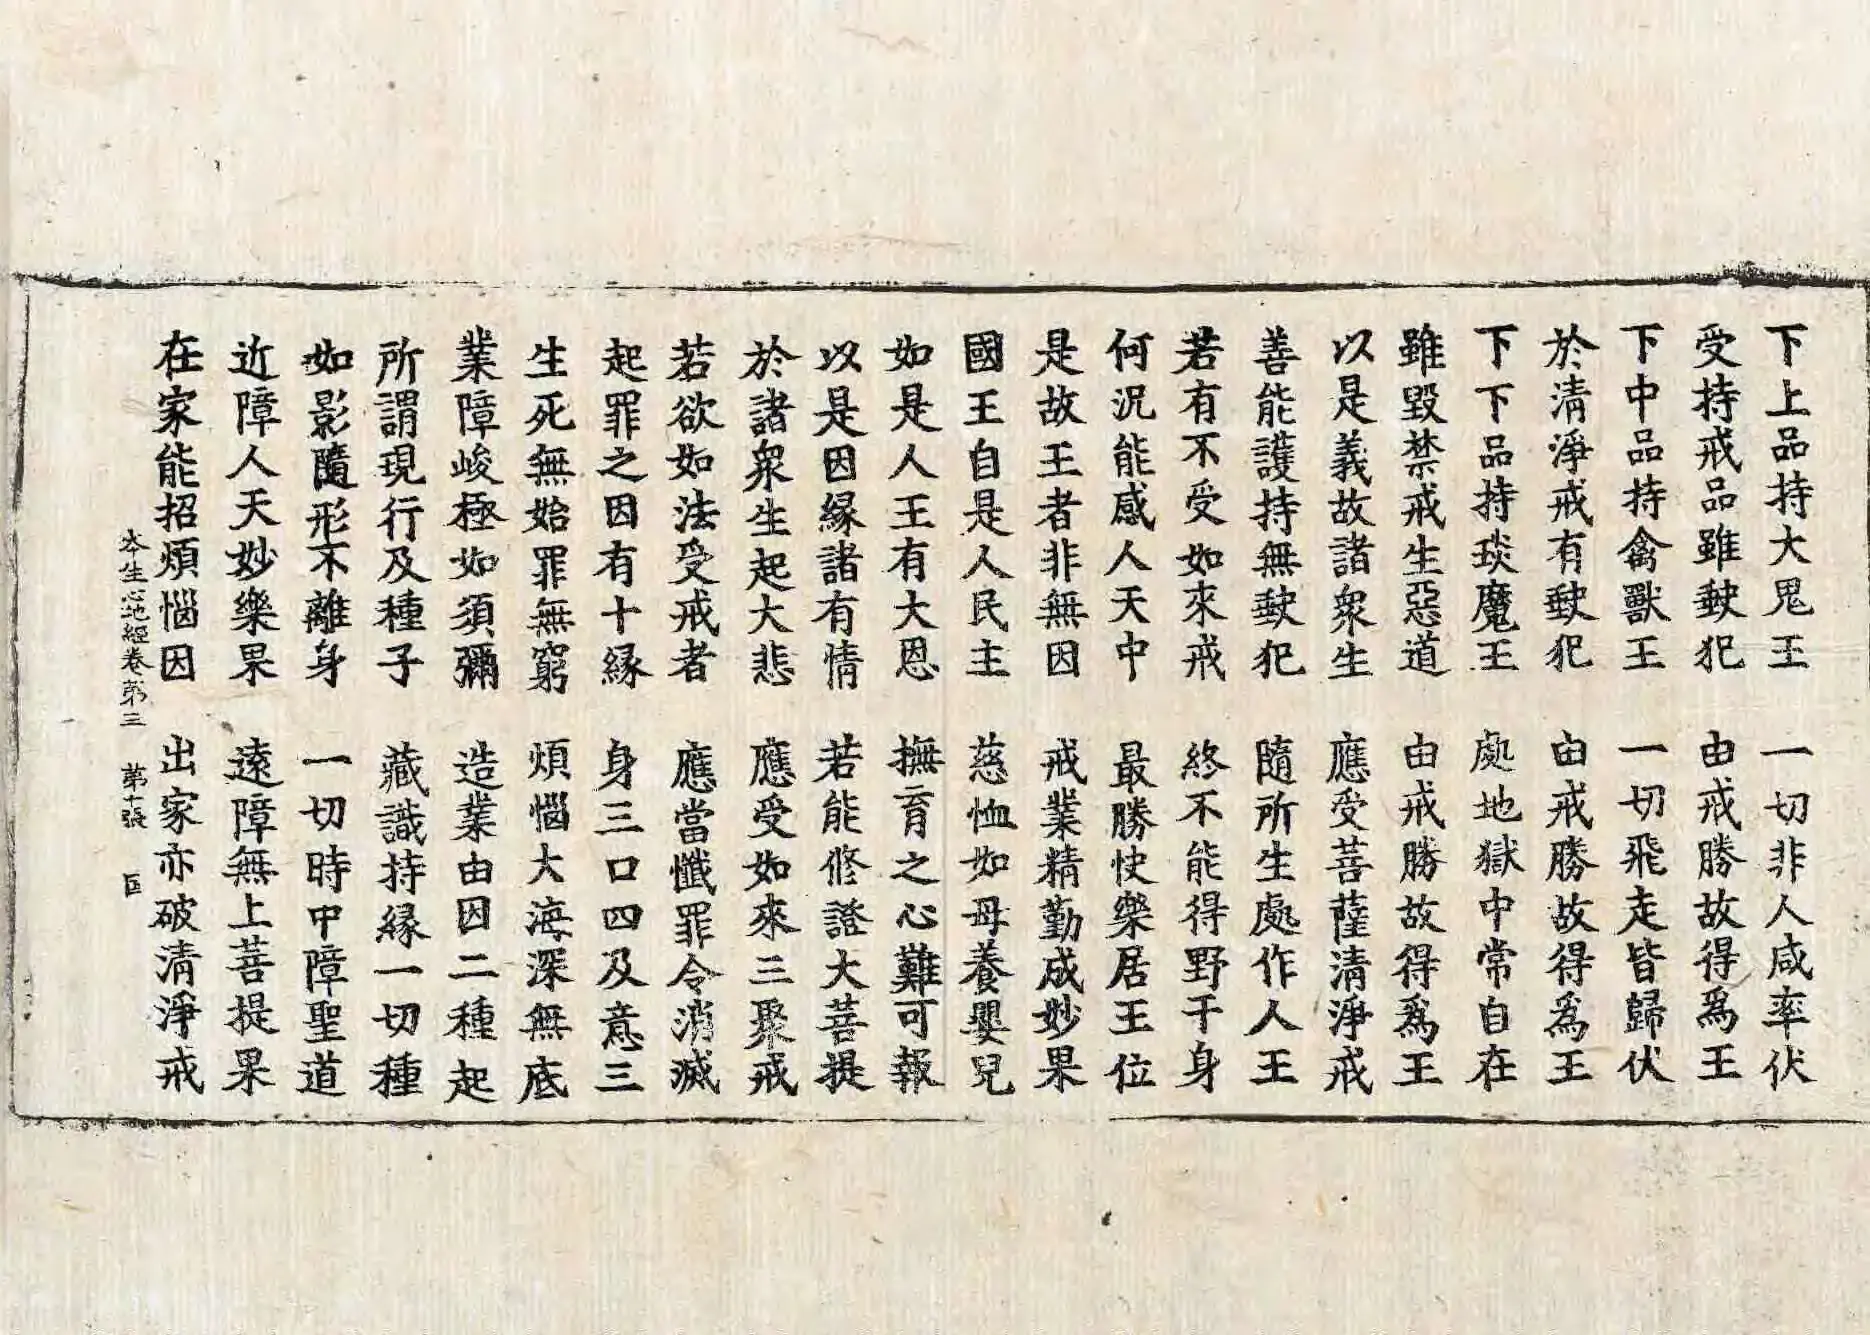 下上品持大鬼王　一切非人咸率伏
受持戒品雖缺犯　由戒勝故得爲王
下中品持禽獸王　一切飛走皆歸伏
於清淨戒有缺犯　由戒勝故得爲王
下下品持琰魔王　處地獄中常自在
雖毀禁戒生惡道　由戒勝故得爲王
以是義故諸衆生　應受菩薩清淨戒
善能護持無缺犯　隨所生處作人王
若有不受如來戒　終不能得野干身
何況能感人天中　最勝快樂居王位
是故王者非無因　戒業精勤成妙果
國王自是人民主　慈恤如母養嬰兒
如是人王有大恩　撫育之心難可報
以是因緣諸有情　若能修證大菩提
於諸衆生起大悲　應受如來三聚戒
若欲如法受戒者　應當懺罪令消滅
起罪之因有十緣　身三口四及意三
生死無始罪無窮　煩惱大海深無底
業障峻極如須彌　造業由因二種起
所謂現行及種子　藏識持緣一切種
如影隨形不離身　一切時中障聖道
近障人天妙樂果　遠障無上菩提果
在家能招煩惱因　出家亦破清淨戒
本生心地經卷第三　第十張　匡